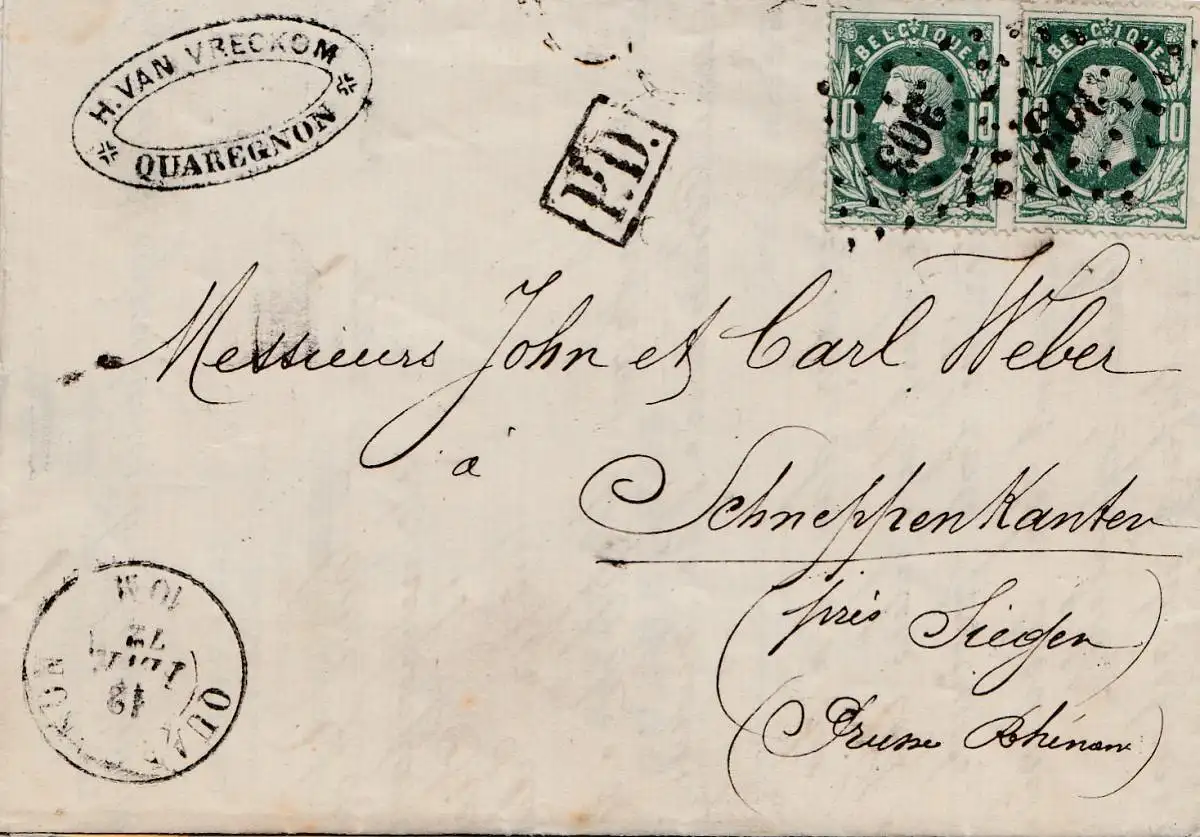 H. VAN VRECKOM
QUAREGNON
P.D.
BELGIQUE
10 10
303
BELGIQUE
10 10
Messieurs John et Carl Weber
à
Schneppenkanten
(près Siegen)
(Prusse Rhénane)
10 M
72
12
QUAREGNON